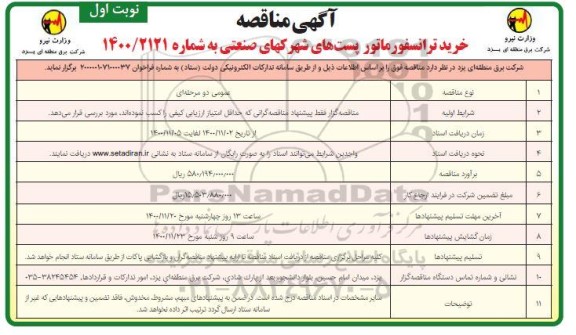 نوبت اول
آگهی مناقصه
خرید ترانسفورماتور پست‌های شهرکهای صنعتی به شماره ۱۴۰۰/۲۱۲۱
وزارت نیرو
شرکت برق منطقه ای یزد
وزارت نیرو
شرکت برق منطقه ای یزد
شرکت برق منطقه‌ای یزد در نظر دارد مناقصه فوق را بر اساس اطلاعات ذیل و از طریق سامانه تدارکات الکترونیکی دولت (ستاد) به شماره فراخوان برگزار نماید.
۱ نوع مناقصه عمومی دو مرحله‌ای
۲ شرایط اولیه مناقصه‌گزار فقط پیشنهاد مناقصه‌گرانی که حداقل امتیاز ارزیابی کیفی را کسب نموده‌اند، مورد بررسی قرار می‌دهد.
۳ زمان دریافت اسناد از تاریخ ۱۴۰۰/۱۱/۰۲ لغایت ۱۴۰۰/۱۱/۰۵
۴ نحوه دریافت اسناد واجدین شرایط می‌توانند اسناد را به صورت رایگان از سامانه ستاد به نشانی www.setadiran.ir دریافت نمایند.
۵ برآورد مناقصه ۵۸۰/۱۹۴/۰۰۰/۰۰۰ ریال
۶ مبلغ تضمین شرکت در فرایند ارجاع کار ۱۵/۵۰۳/۸۸۰/۰۰۰ ریال
۷ آخرین مهلت تسلیم پیشنهادها ساعت ۱۳ روز چهارشنبه مورخ ۱۴۰۰/۱۱/۲۰
۸ زمان گشایش پیشنهادها ساعت ۹ روز شنبه مورخ ۱۴۰۰/۱۱/۲۳
۹ تسلیم پیشنهادها کلیه مراحل برگزاری مناقصه از دریافت اسناد مناقصه تا ارائه پیشنهاد مناقصه‌گران و بازگشایی پاکات از طریق سامانه ستاد انجام خواهد شد.
۱۰ نشانی و شماره تماس دستگاه مناقصه‌گزار یزد، میدان امام حسین، بلوار دانشجو، بعد از پارک شادی، شرکت برق منطقه‌ای یزد، امور تدارکات و قراردادها، ۳۸۲۴۵۴۵۴-۰۳۵
۱۱ توضیحات سایر مشخصات در اسناد مناقصه درج شده است. در ضمن به پیشنهادهای مبهم، مشروط، مخدوش، فاقد تضمین و پیشنهادهایی که غیر از سامانه ستاد ارسال گردد ترتیب اثر داده نخواهد شد.